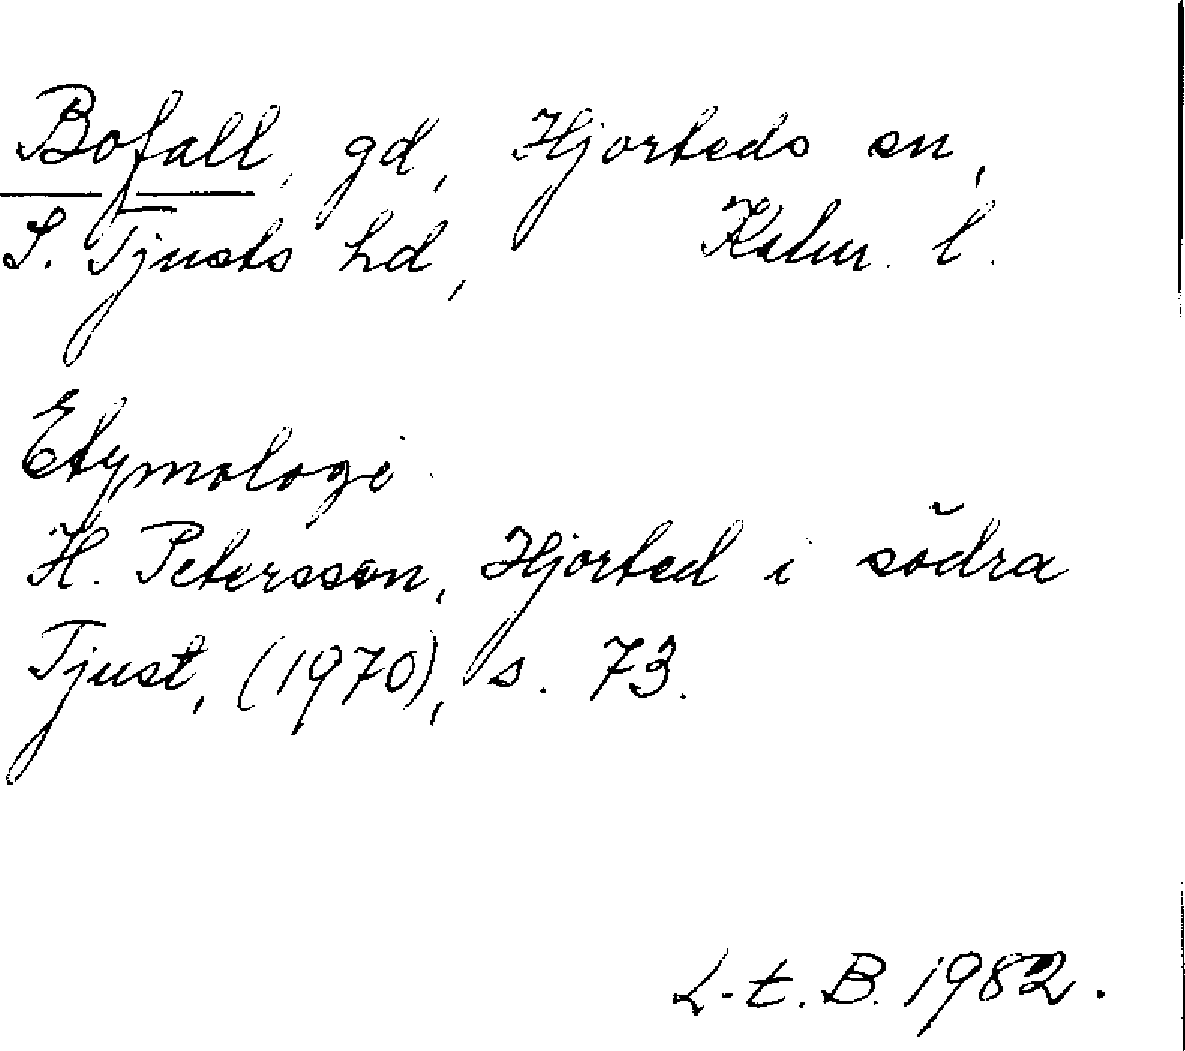 Bofall, gd, Hjorteds sn,
S. Tjusts hd, Kalm. l.
Etymologi.
H. Petersson, Hjorted i södra
Tjust, (1970), s. 73.
L-E. B. 1982.